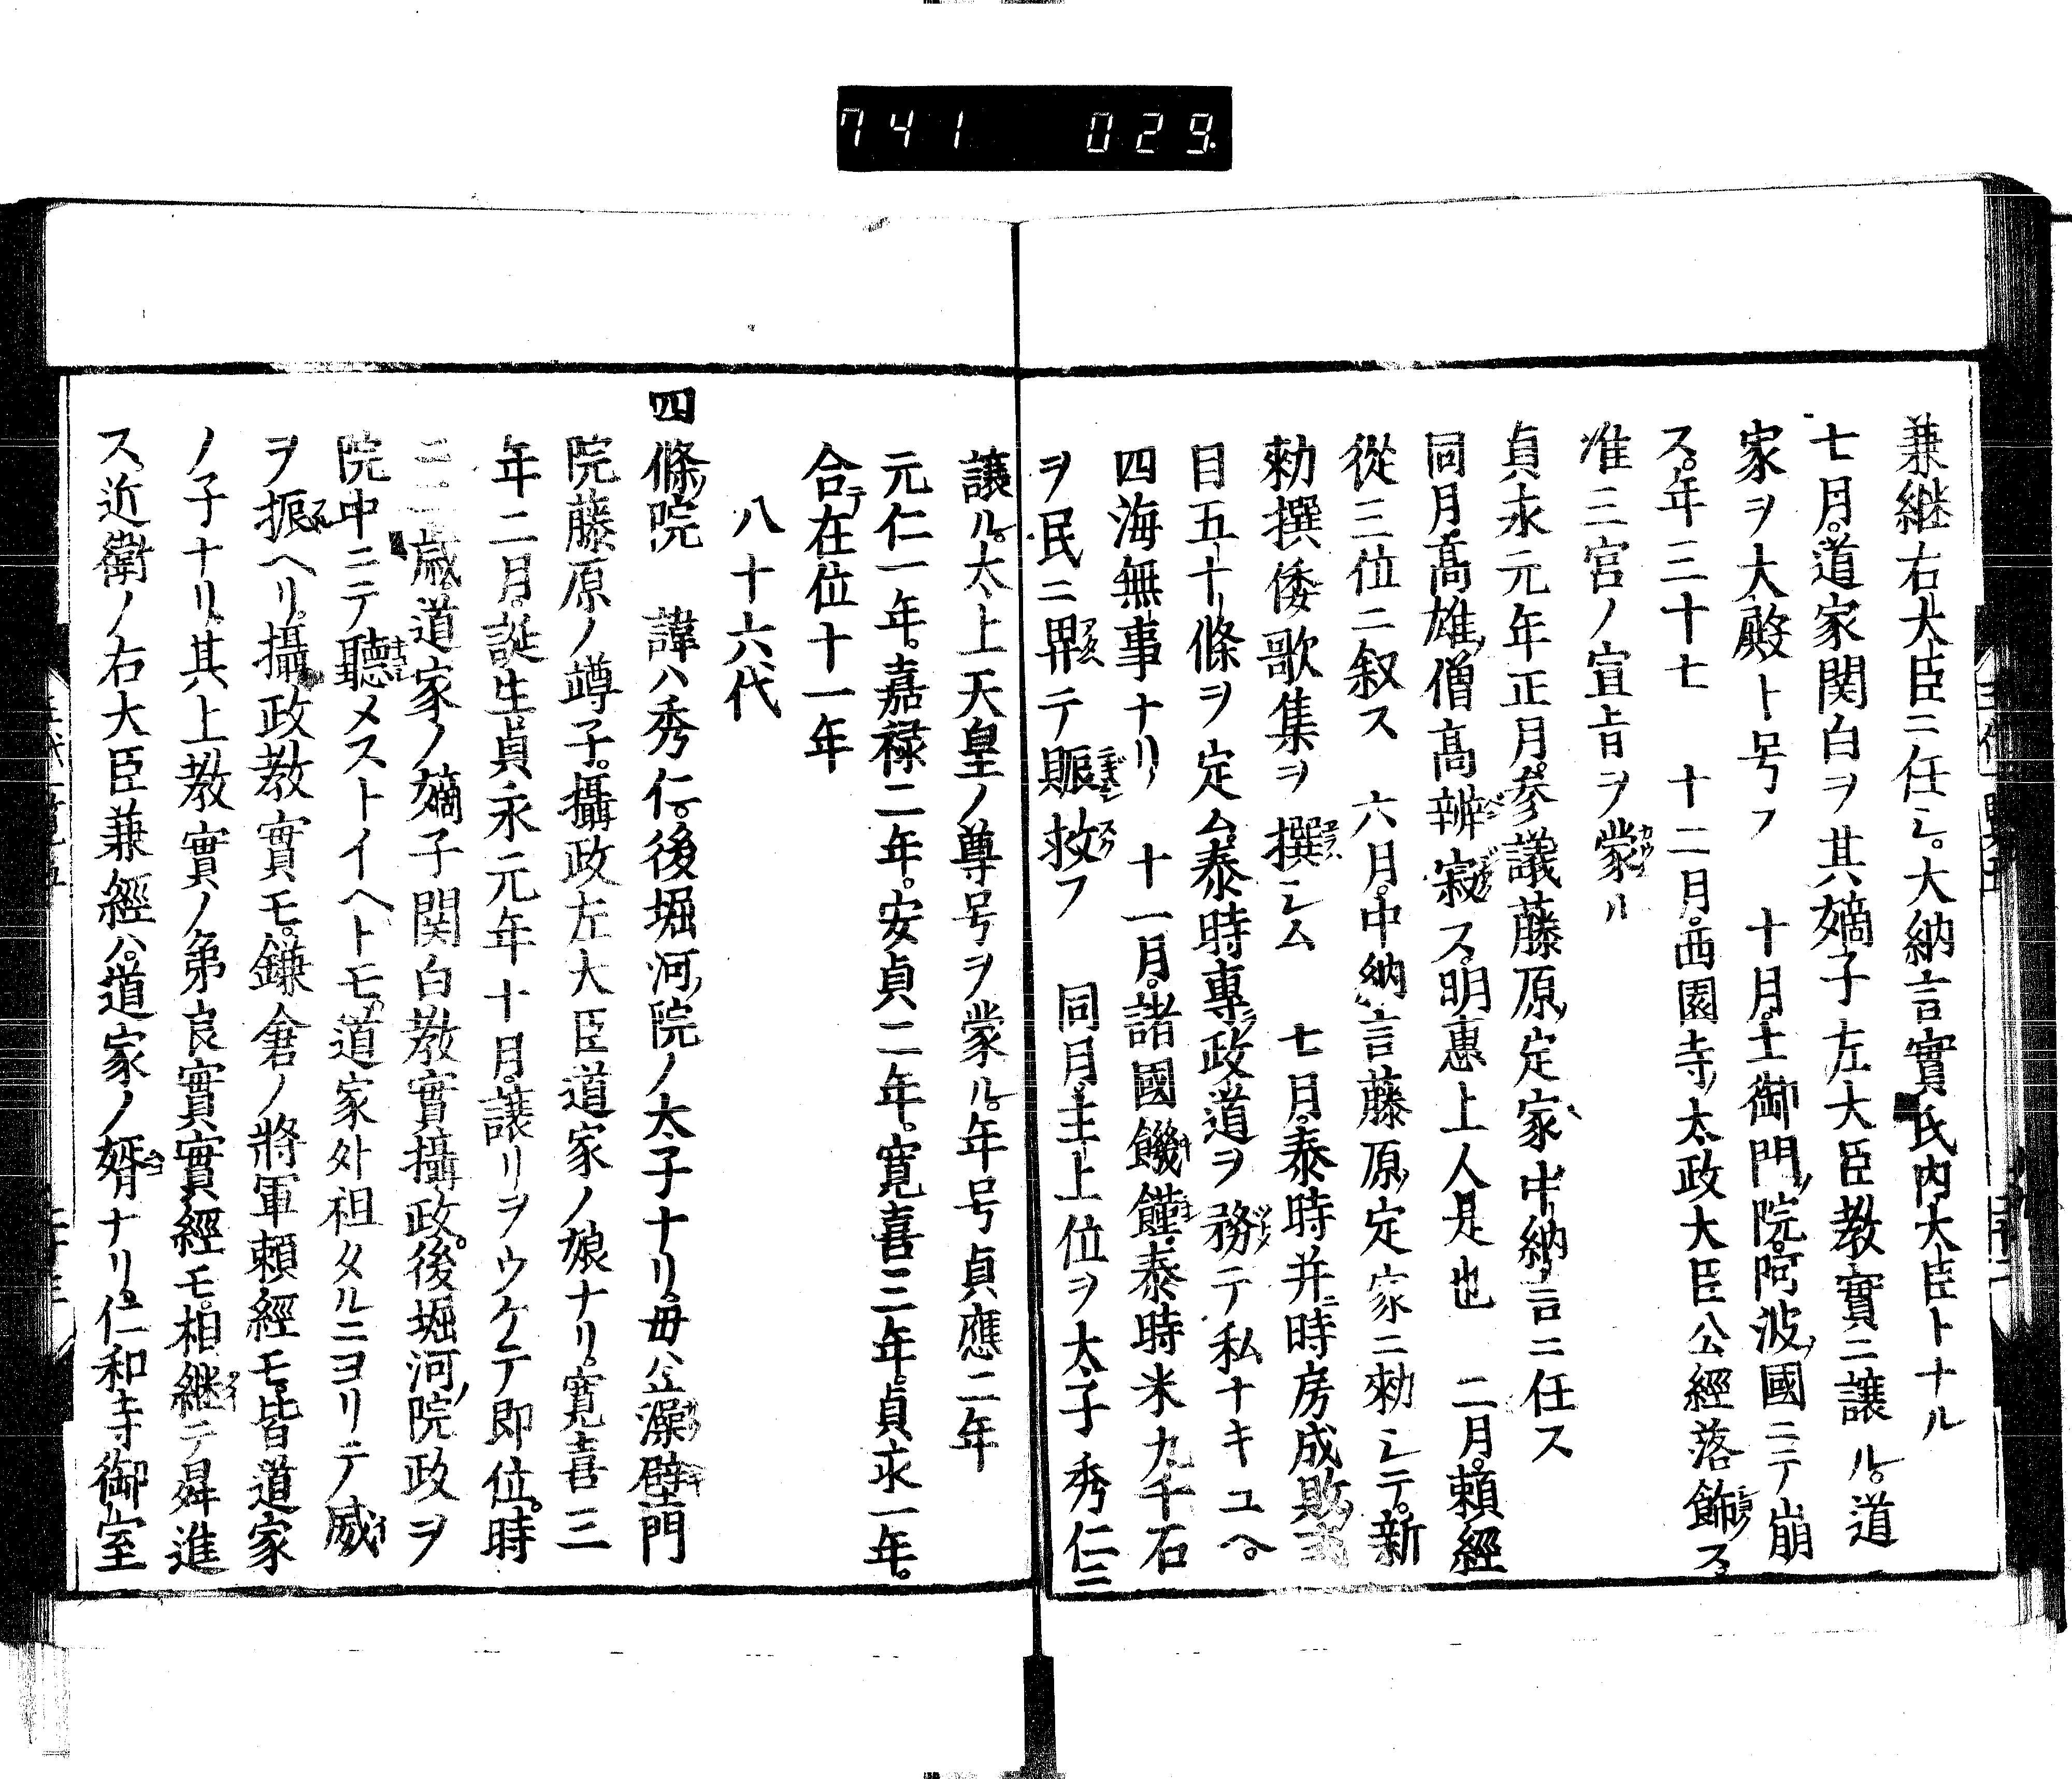 741 029
兼継右大臣ニ任シ。大納言實氏内大臣トナル
七月。道家関白ヲ其嫡子左大臣教實ニ譲ル。道
家ヲ大殿ト号フ　十月。土御門院。阿波國ニテ崩
ス。年三十七　十二月。西園寺太政大臣公經落飾ス。
准三宮ノ宣旨ヲ蒙ル
貞永元年正月。参議藤原定家中納言ニ任ス
同月。髙雄僧髙辨寂ス。明惠上人是也　二月。頼經
從三位ニ叙ス　六月。中納言藤原定家ニ勅シテ。新
勅撰倭歌集ヲ撰シム　七月。泰時并時房成敗式
目五十條ヲ定ム。泰時專政道ヲ務テ私ナキユヘ。
四海無事ナリ　十一月。諸國饑饉。泰時米九千石
ヲ民ニ畀テ賑救フ　同月。主上位ヲ太子秀仁ニ
譲ル。太上天皇ノ尊号ヲ蒙ル。年号貞應二年
元仁一年。嘉禄二年。安貞二年。寛喜三年。貞永一年。
合テ在位十一年
八十六代
四條院　諱ハ秀仁。後堀河院ノ太子ナリ。毋ハ藻壁門
院藤原ノ竴子。攝政左大臣道家ノ娘ナリ。寛喜三
年二月。誕生。貞永元年十月。譲リヲウケテ即位。時
ニ二歳。道家ノ嫡子関白教實攝政。後堀河院政ヲ
院中ニテ聽メストイヘトモ。道家外祖タルニヨリテ威
ヲ振ヘリ。攝政教實モ。鎌倉ノ將軍頼經モ皆道家
ノ子ナリ。其上教實ノ弟良實實經モ。相継テ舜進
ス。近衛ノ右大臣兼經ハ。道家ノ婿ナリ。仁和寺御室